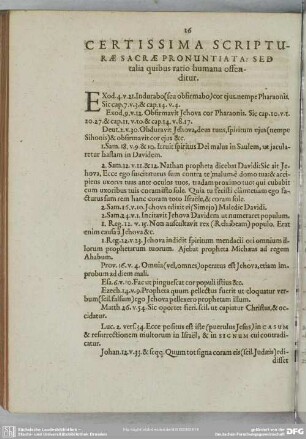 26
CERTISSIMA SCRIPTU-
RÆ SACRÆ PRONUNTIATA: SED
talia quibus ratio humana offen-
ditur.
EXod. 4. v. 21. Indurabo (seu obfirmabo) cor ejus. nempe Pharaonis.
Sic cap. 7. v. 3. & cap. 14. v. 4.
Exod. 9. v. 12. Obfirmavit Jehova cor Pharaonis. Sic cap. 10. v. 1.
20. 27. & cap. 11. v. 10. & cap. 14. v. 8. 17.
Deut. 2. v. 30. Obduravit Jehova, deus tuus, spiritum ejus (nempe
Sihonis) & obfirmavit cor ejus &c.
1. Sam. 18. v. 9. & 10. Irruit spiritus Dei malus in Saulem, ut jacula-
retur hastam in Davidem.
2. Sam. 12. v. 11. & 12. Nathan propheta dicebat Davidi: Sic ait Je-
hova. Ecce ego suscitaturus sum contra te malum è domo tua: & acci-
piens uxores tuas ante oculos tuos, tradam proximo tuo: qui cubabit
cum uxoribus tuis coram isto sole. Quia tu fecisti clanculum: ego fa-
cturus sum rem hanc coram toto Israële, & coram sole.
2. Sam. 16. v. 10. Jehova dixit ei (Simejo) Maledic Davidi.
2. Sam. 24. v. 1. Incitavit Jehova Davidem ut numeraret populum.
1. Reg. 12. v. 15. Non auscultavit rex (Rehabeam) populo. Erat
enim causa à Jehova &c.
1. Reg. 22. v. 23. Jehova indidit spiritum mendacii ori omnium il-
lorum prophetarum tuorum. Ajebat propheta Michæas ad regem
Ahabum.
Prov. 16. v. 4. Omnia (vel, omnes) operatus est Jehova, etiam im-
probum ad diem mali.
Esa. 6. v. 10. Fac ut pinguescat cor populi istius &c.
Ezech. 14. v. 9. Propheta quum pellectus fuerit ut eloquatur ver-
bum (scil. falsum) ego Jehova pellexero prophetam illum.
Matth. 26. v. 54. Sic oportet fieri. scil. ut capiatur Christus, & oc-
cidatur.
Luc. 2. vers. 34. Ecce positus est iste (puerulus Jesus) in CASUM
& resurrectionem multorum in Israël, & in SIGNUM cui contradi-
catur.
Johan. 12. v. 35. & seqq. Quum tot signa coram eis (scil. Judæis) edi-
disset